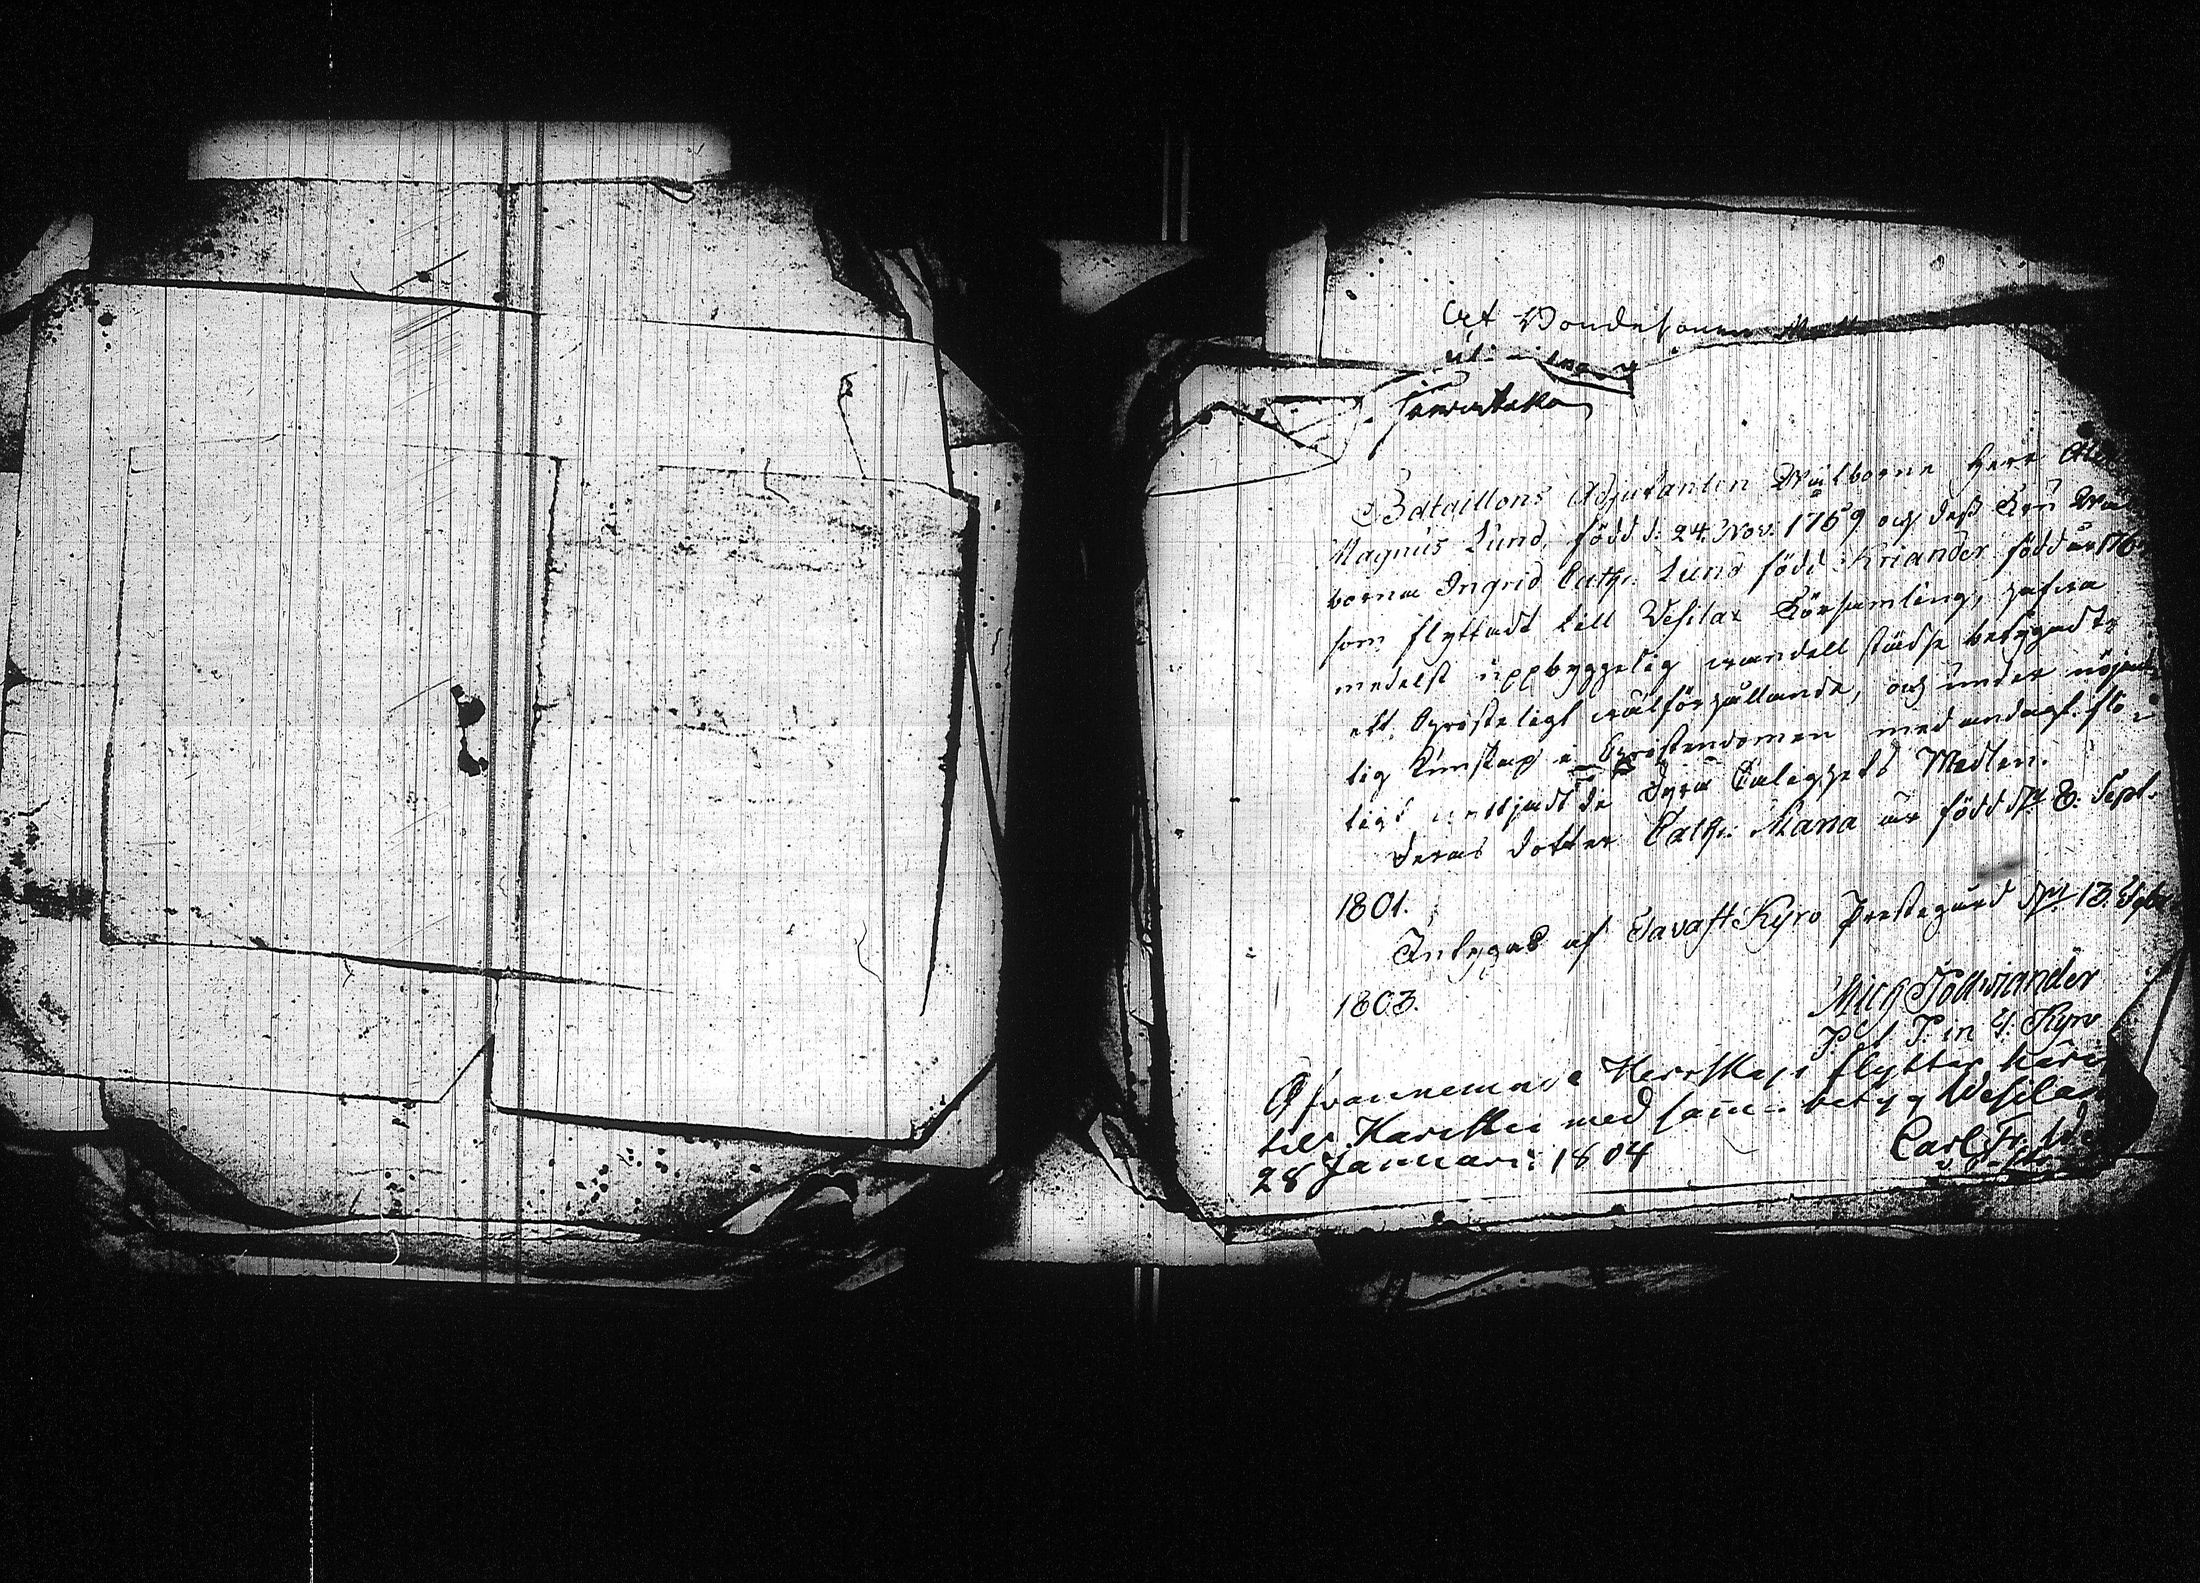 At Bondesonen
Bataillons Adjutanten Wälborne Herr Alex
Magnus Lund, född d. 24. Nov. 1769 och dess Fru Wäl
borna Ingrid Cath. Lund född Kriander född år 176
som flyttadt till Wesilax Församling, hafva
medelst uppbyggelig wandell städse betygadt
ett Christeligt wälförhållande, och under nöjak
lig kunskap i Christendomen med andagt fli
ligt nyttjadt de dyra Salighets Medlen.
Deras dotter Cath. Maria är född d. 8. Sept.
1801.
Intygas af Tavast Kyro Prestegård d. 13.
1803.
Mich
P. et P. in T. Kyro
Ofvannemnde Herrskap flyttar häri
till Kariskei med samma betyg Wesilax
28 Januari: 1804
Carl Fr.